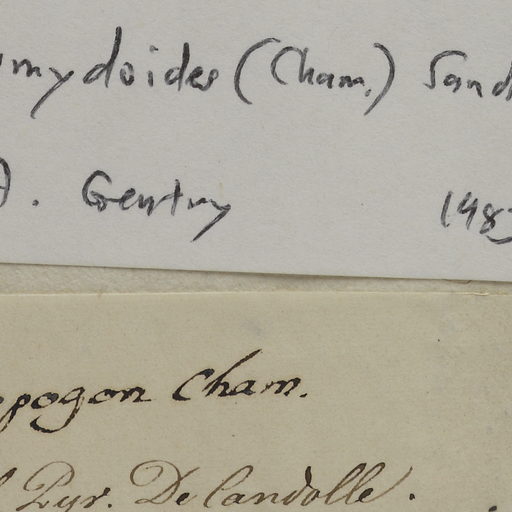 mydoides (Cham.) Sand
A. Gentry 198
pogon Cham.
Pyr. De Candolle.